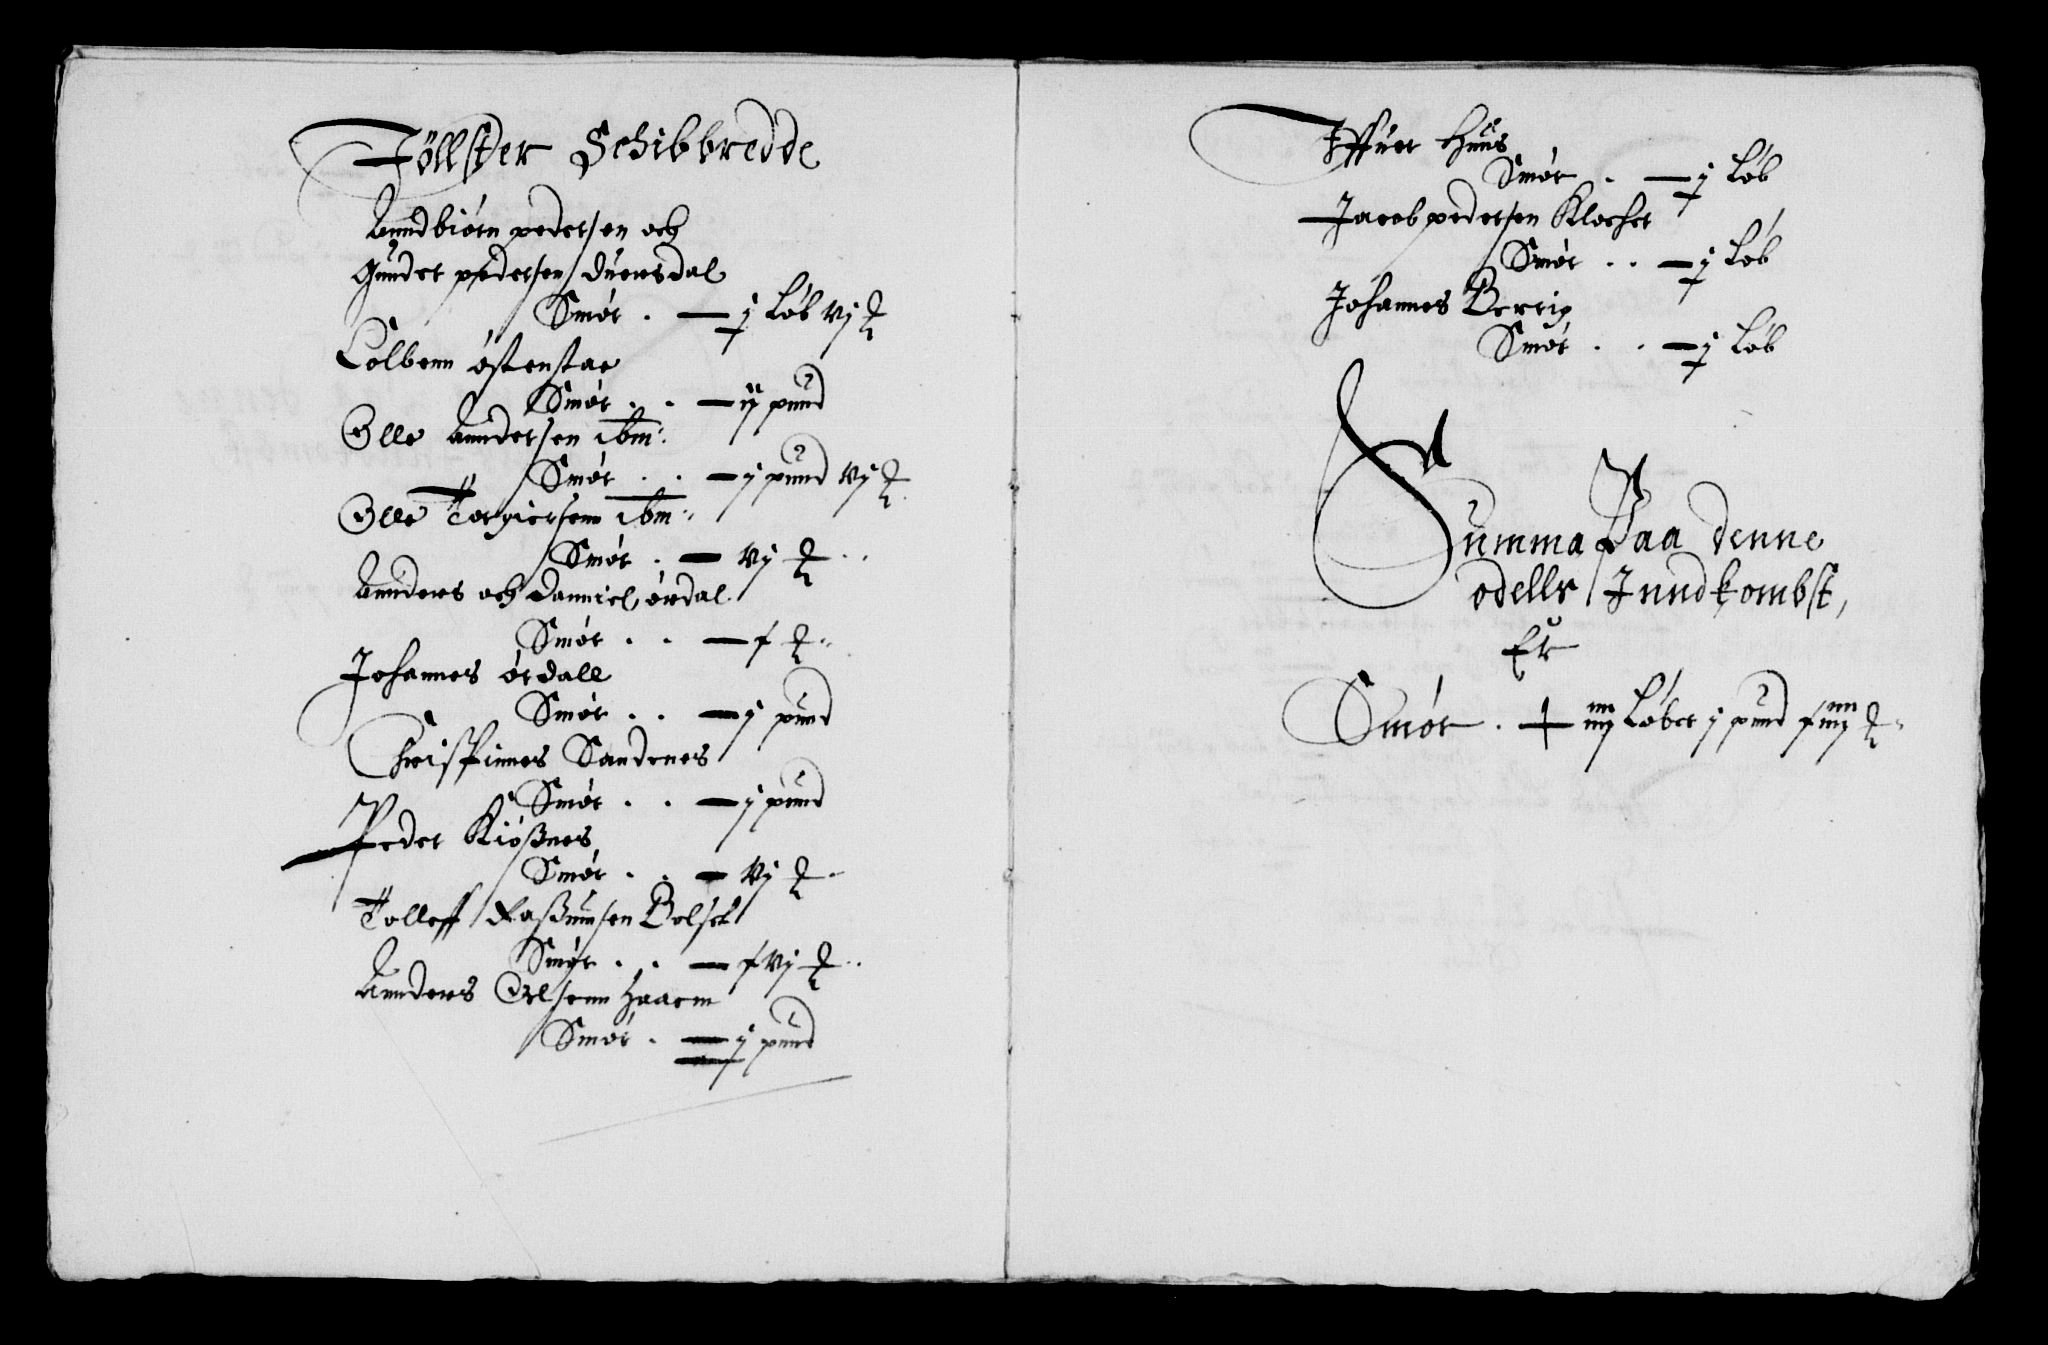 Jöllster Schibbredde
Anndbiörn pedersen och
Gunder pedersen Duersdal
Smör . — j Löb vj ℔
Colbenn östenstae
Smör . . — ij pund
Olle Andersen ibm:
Smör . . — j pund vj ℔
Olle Torgiersenn ibm:
Smör . — vj ℔ . .
Anders och Danniel ördal
Smör . . — x ℔ .
Johannes ördall
Smör . . — j pund
Chrispinnes Sandenes
Smör . . — j pund
Peder Kiößnes
Smör . . — vj ℔ .
Tolleff Raßmusen Bolset
Smör . . — xvj ℔ .
Anders Olsenn Haaem
Smör . — j pund
Iffuer Huus
Smör . — j Löb
Jacob pedersen Klocker
Smör . . — j Löb
Johannes Berrig
Smör . . — j Löb
Summa Paa denne
odells Inndkombst,
Er
Smör . — Löber j pund ℔